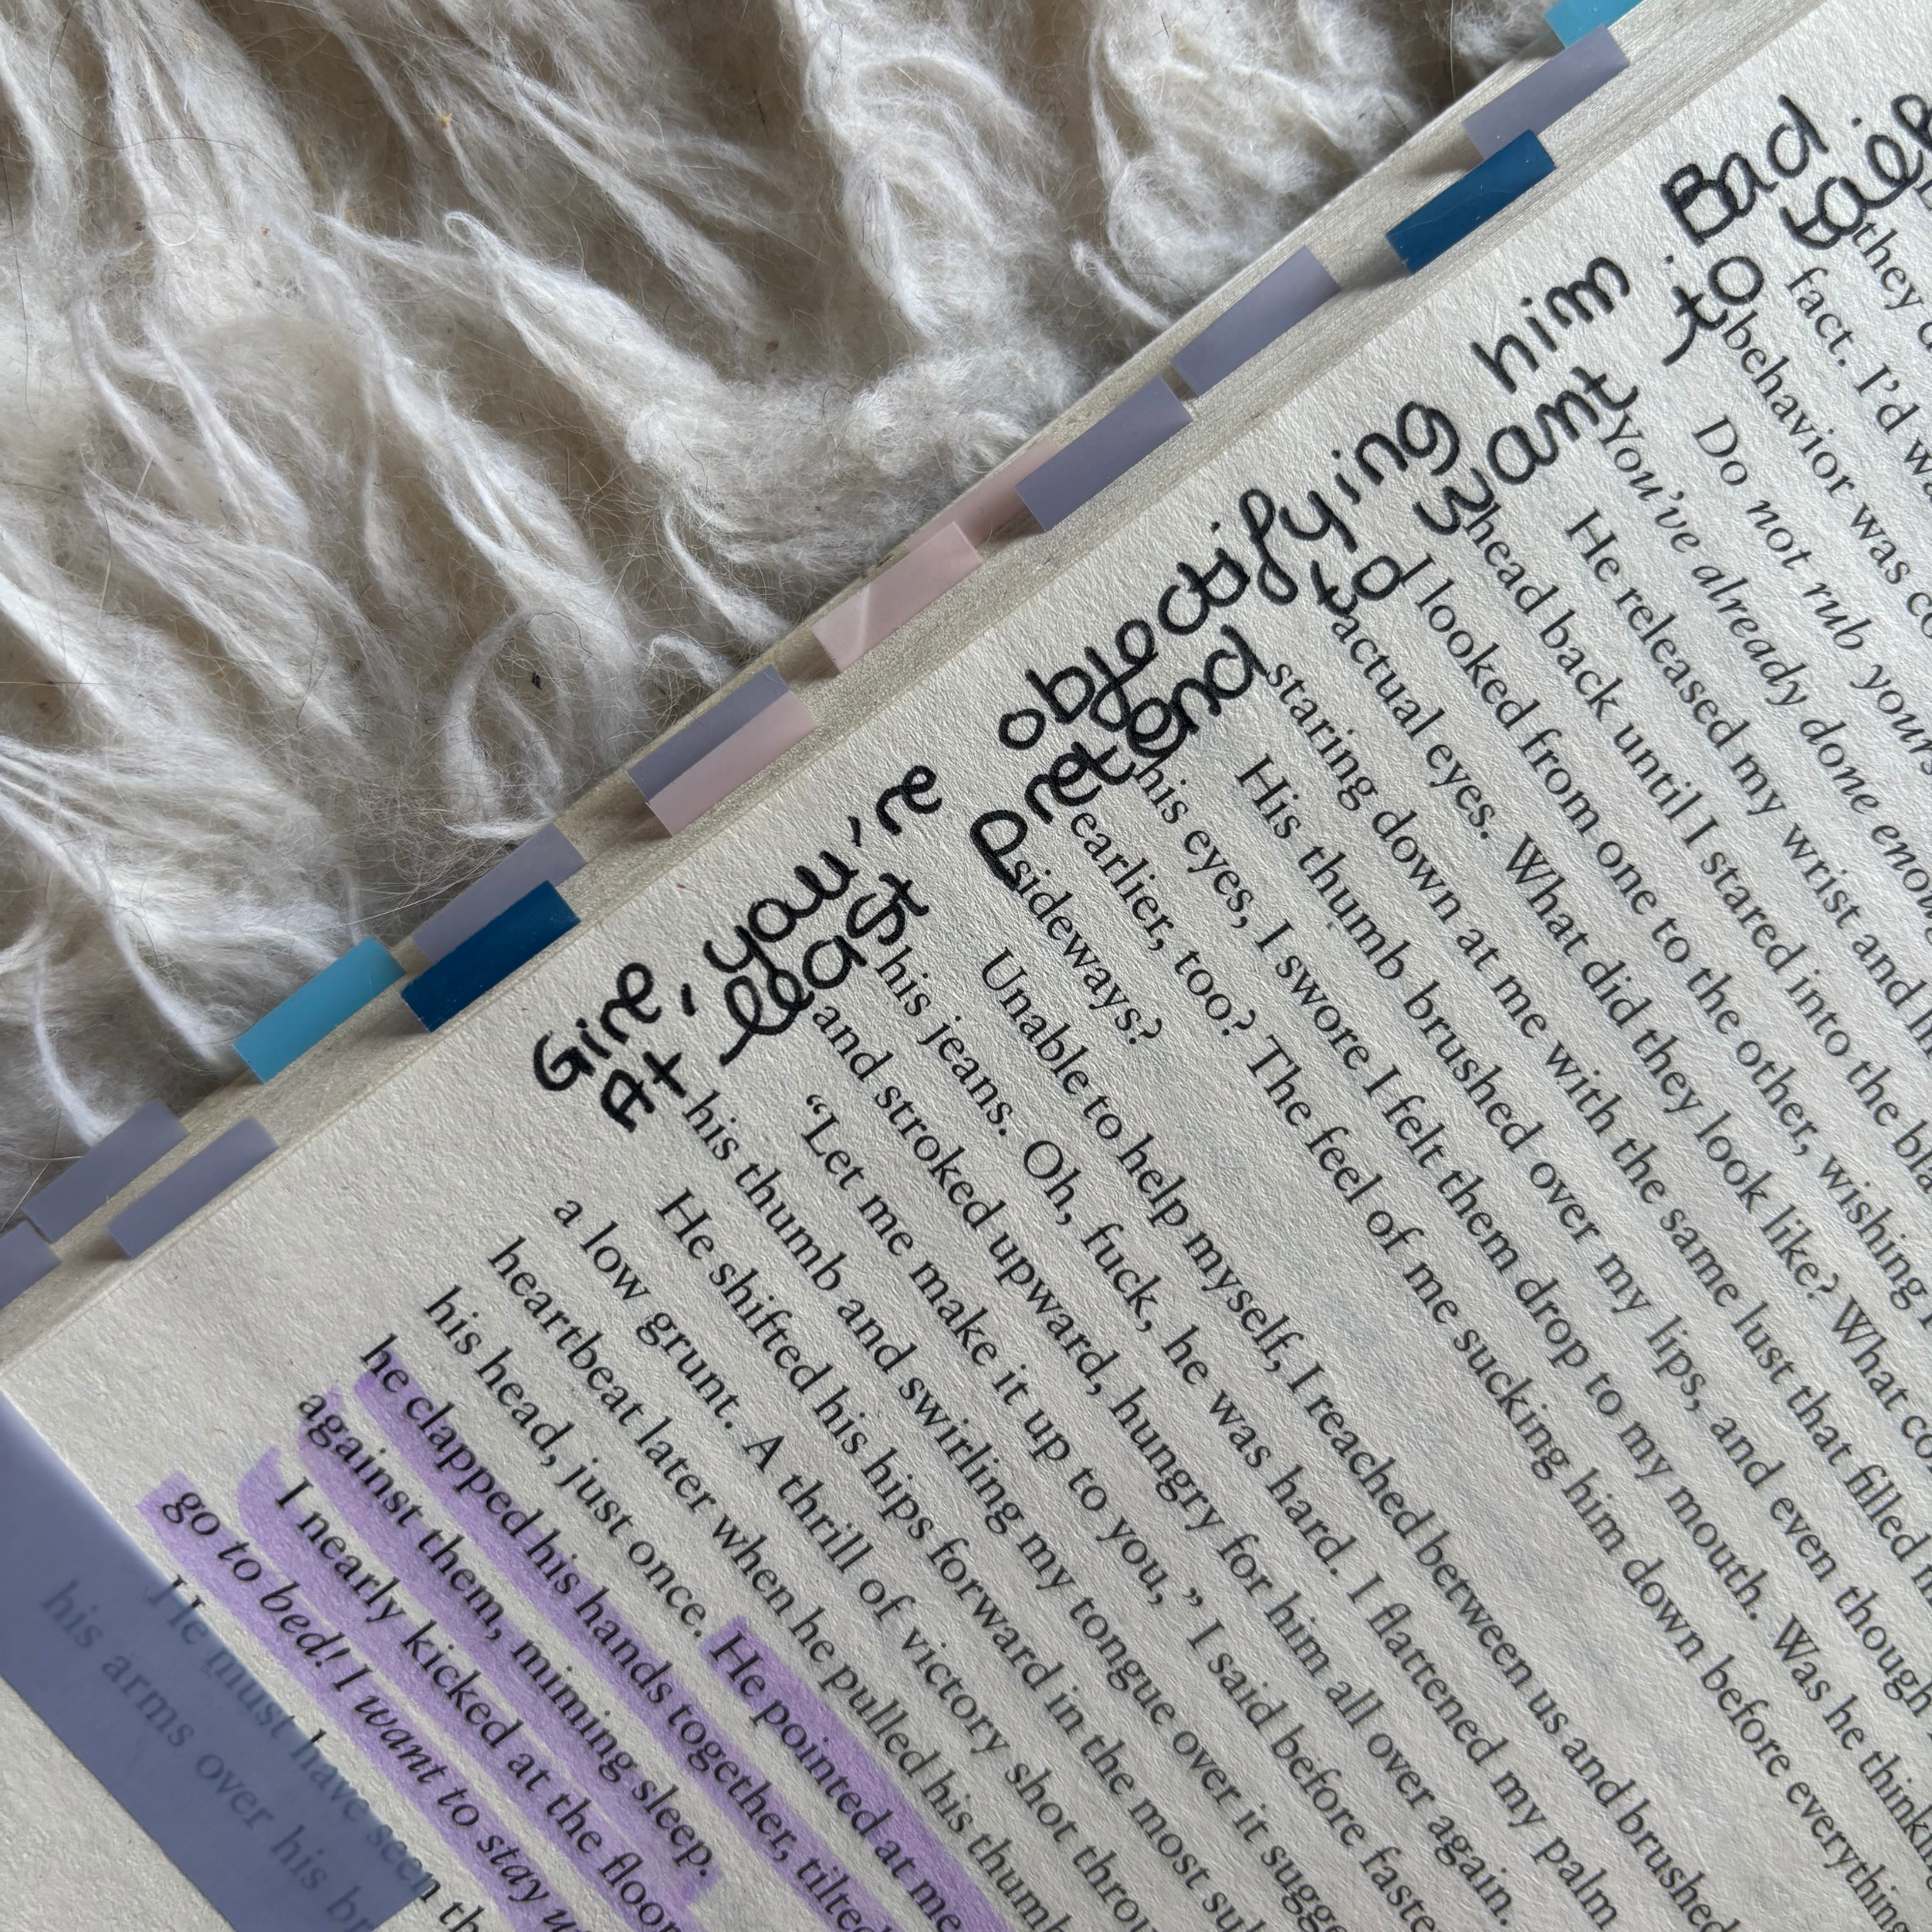 you're objectifying him
At least
and to want to
Bad
they
fact. I'd
behavior was
Do not rub
You've already done
He released my wrist and
head back until I stared into the
I looked from one to the other, wishing
actual eyes. What did they look like? What
staring down at me with the same lust that filled
His thumb brushed over my lips, and even though
his eyes, I swore I felt them drop to my mouth. Was he
earlier, too? The feel of me sucking him down before everything
sideways?
Unable to help myself, I reached between us and brushed
his jeans. Oh, fuck, he was hard. I flattened my palm
and stroked upward, hungry for him all over again.
“Let me make it up to you,” I said before
his thumb and swirling my tongue over it
He shifted his hips forward in the most
a low grunt. A thrill of victory shot
heartbeat later when he pulled his
his head, just once. He pointed at me
he clapped his hands together, tilted
against them, miming sleep.
I nearly kicked at the floor
go to bed! I want to stay
He must have seen
his arms over his